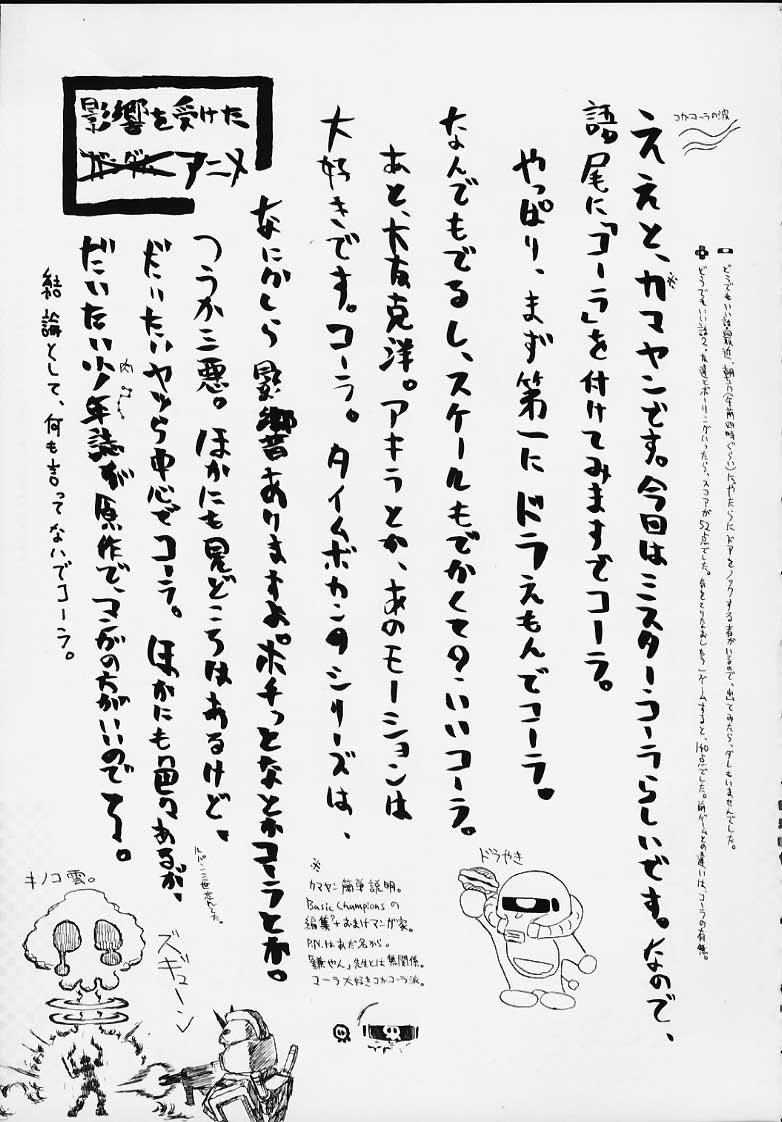 コカコーラの波
どうでもいい話最近、朝方(午前四時ぐらい)にやたらにドアをノックする者がいるので、出てみたら、ダレもいませんでした。
どうでもいい話2、友達とボーリングいったら、スコアが52点でした。気をとりなおしもう1ゲームすると、140点でした。前ゲームとの違いは、コーラの有無。
ええと、カマヤン※です。今回はミスターコーラらしいです。なので、
語尾に「コーラ」を付けてみますでコーラ。
やっぱり、まず第一にドラえもんでコーラ。
なんでもでるし、スケールもでかくての・いいコーラ。
あと、大友克洋。アキラとか、あのモーションは
大好きです。コーラ。タイムボカンのシリーズは、
影響を受けた
ガンダム アニメ
なにかしら影響ありますよ。ポチっとなとかコーラとか。
つうか三悪。ほかにも見どころはあるけど、
だいたいヤツら中心でコーラ。ほかにも色々あるが、
ルパン三世忘れてた。
だいたい少年誌が原作で、マンガの方がいいのでそう。
結論として、何も言ってないでコーラ。
ドラやき
※
カマヤン簡単説明。
Basic Championsの
編集?+おまけマンガ家。
P.N.はあだ名から。
「鎌やん」先生とは無関係。
コーラ大好きコカコーラ派。
キノコ雲。
ズギューン